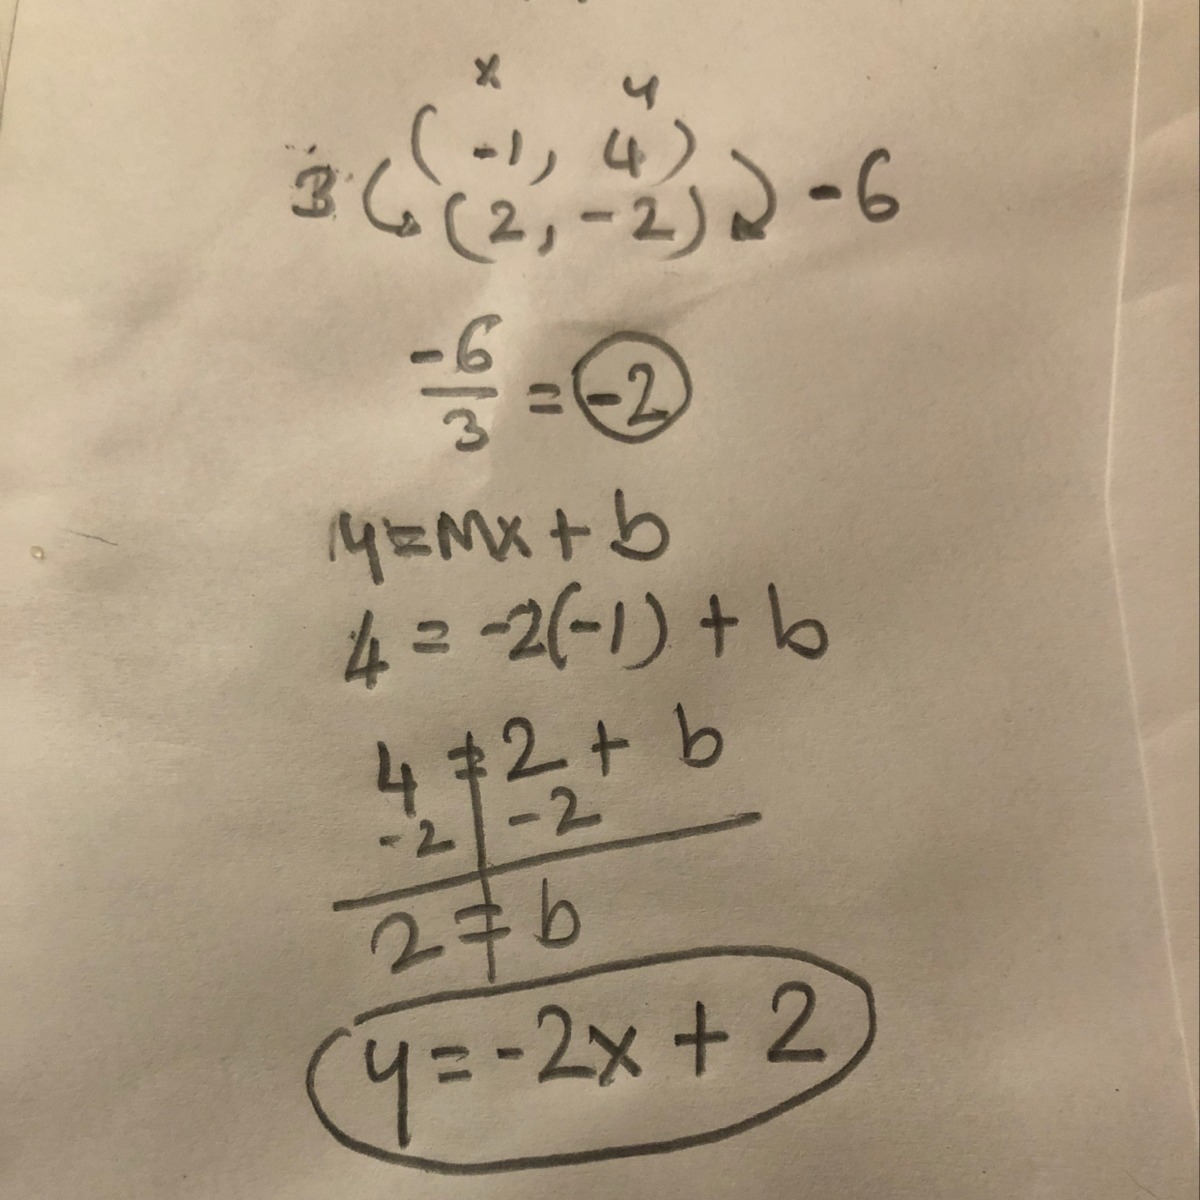 x y
(-1, 4)
3 (2, -2) -6
-6
3 = -2
y=mx + b
4 = -2(-1) + b
4 = 2 + b
-2 -2
2 = b
y = -2x + 2